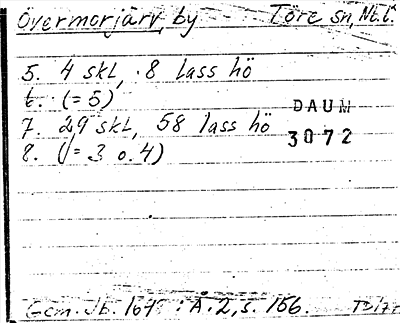 Övermorjärv, by Töre sn, Nb.l.
5. 4 skl, 8 lass hö
6. (= 5)
7. 29 skl, 58 lass hö
DAUM
3072
8. (= 3 o. 4)
Gem. Jb. 164 : Å. 2, s. 156.